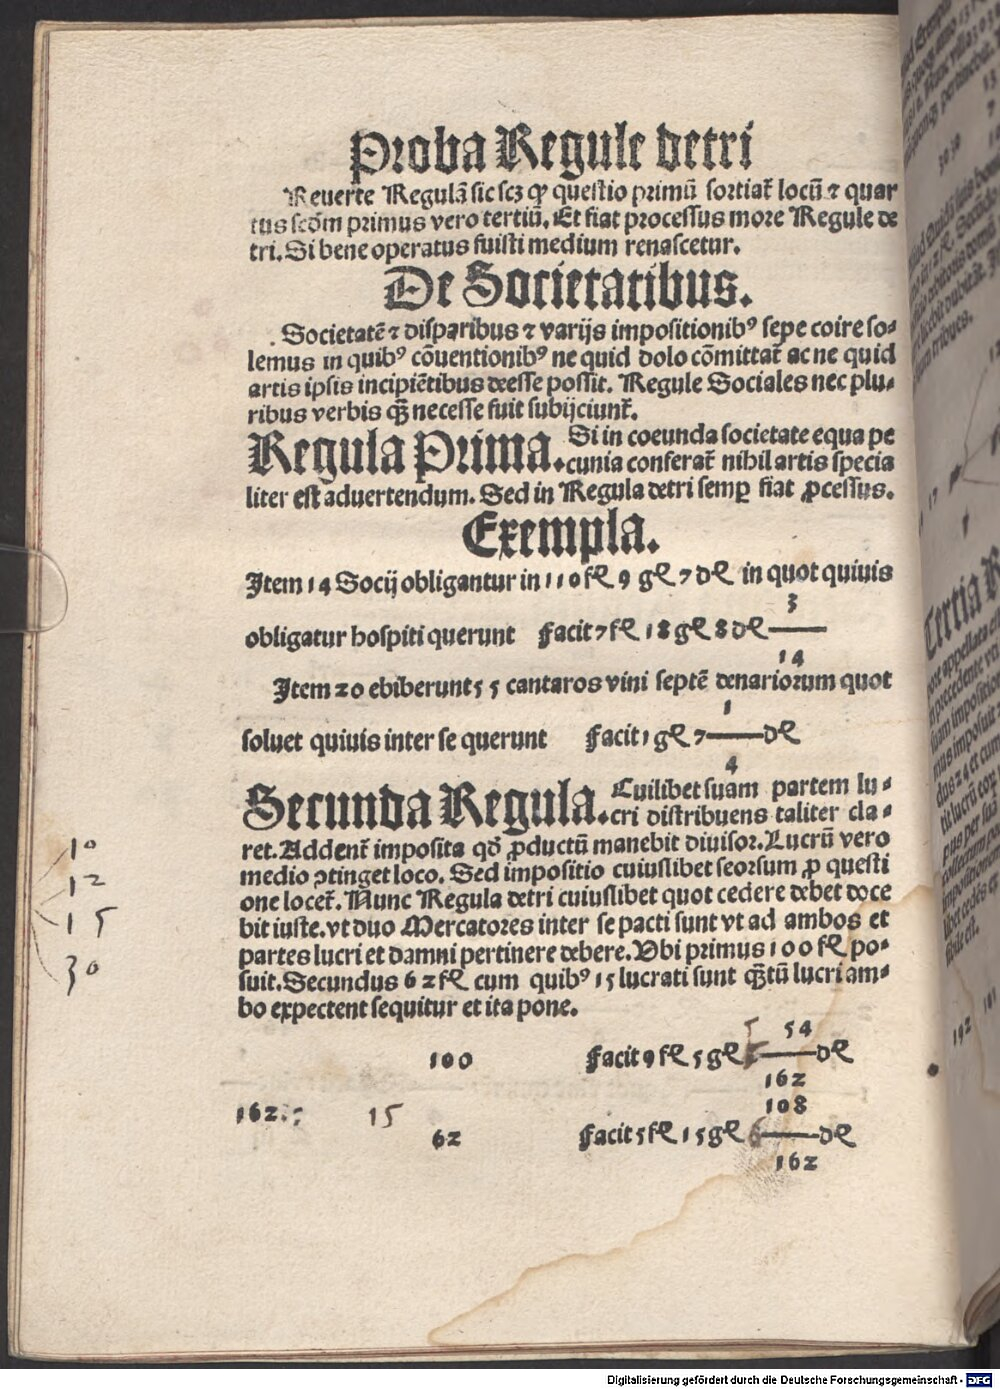 Proba Regule detri
Reuerte Regulã sic scz ꝙ questio primũ sortiat̃ locũ ⁊ quar
tus scďm primus vero tertiũ. Et fiat processus more Regule de
tri. Si bene operatus fuisti medium renascetur.
De Societatibus.
Societatẽ ⁊ disparibus ⁊ varijs impositionibꝰ sepe coire so⸗
lemus in quibꝰ cõuentionibꝰ ne quid dolo cõmittat̃ ac ne quid
artis ipsis incipiẽtibus deesse possit. Regule Sociales nec plu⸗
ribus verbis q̃ȝ necesse fuit subijciunt̃.
Regula Prima. Si in coeunda societate equa pe
cunia conferat̃ nihil artis specia
liter est aduertendum. Sed in Regula detri semꝑ fiat ꝓcessus.
Exempla.
Item 14 Socij obligantur in 110 fl 9 gl 7 dl in quot quiuis
3
obligatur hospiti querunt facit 7 fl 18 gl 8 dl —
14
Item 20 ebiberunt 55 cantaros vini septẽ denariorum quot
1
soluet quiuis inter se querunt facit 1 gl 7 — dl
4
Secunda Regula. Cuilibet suam partem lu⸗
cri distribuens taliter cla⸗
ret. Addent̃ imposita qď ꝓductũ manebit diuisor. Lucrũ vero
medio ꝯtinget loco. Sed impositio cuiuslibet seorsum ꝓ questi
one locet̃. Nunc Regula detri cuiuslibet quot cedere debet doce
bit iuste. vt duo Mercatores inter se pacti sunt vt ad ambos et
partes lucri et damni pertinere debere. Vbi primus 100 fl po⸗
suit. Secundus 62 fl cum quibꝰ 15 lucrati sunt q̃ȝtũ lucri am⸗
bo expectent sequitur et ita pone.
10
12
15
30
5 54
100 facit 9 fl 5 gl — dl
162
108
162. 15
62 facit 5 fl 15 gl 6 — dl
162
Digitalisierung gefördert durch die Deutsche Forschungsgemeinschaft - DFG